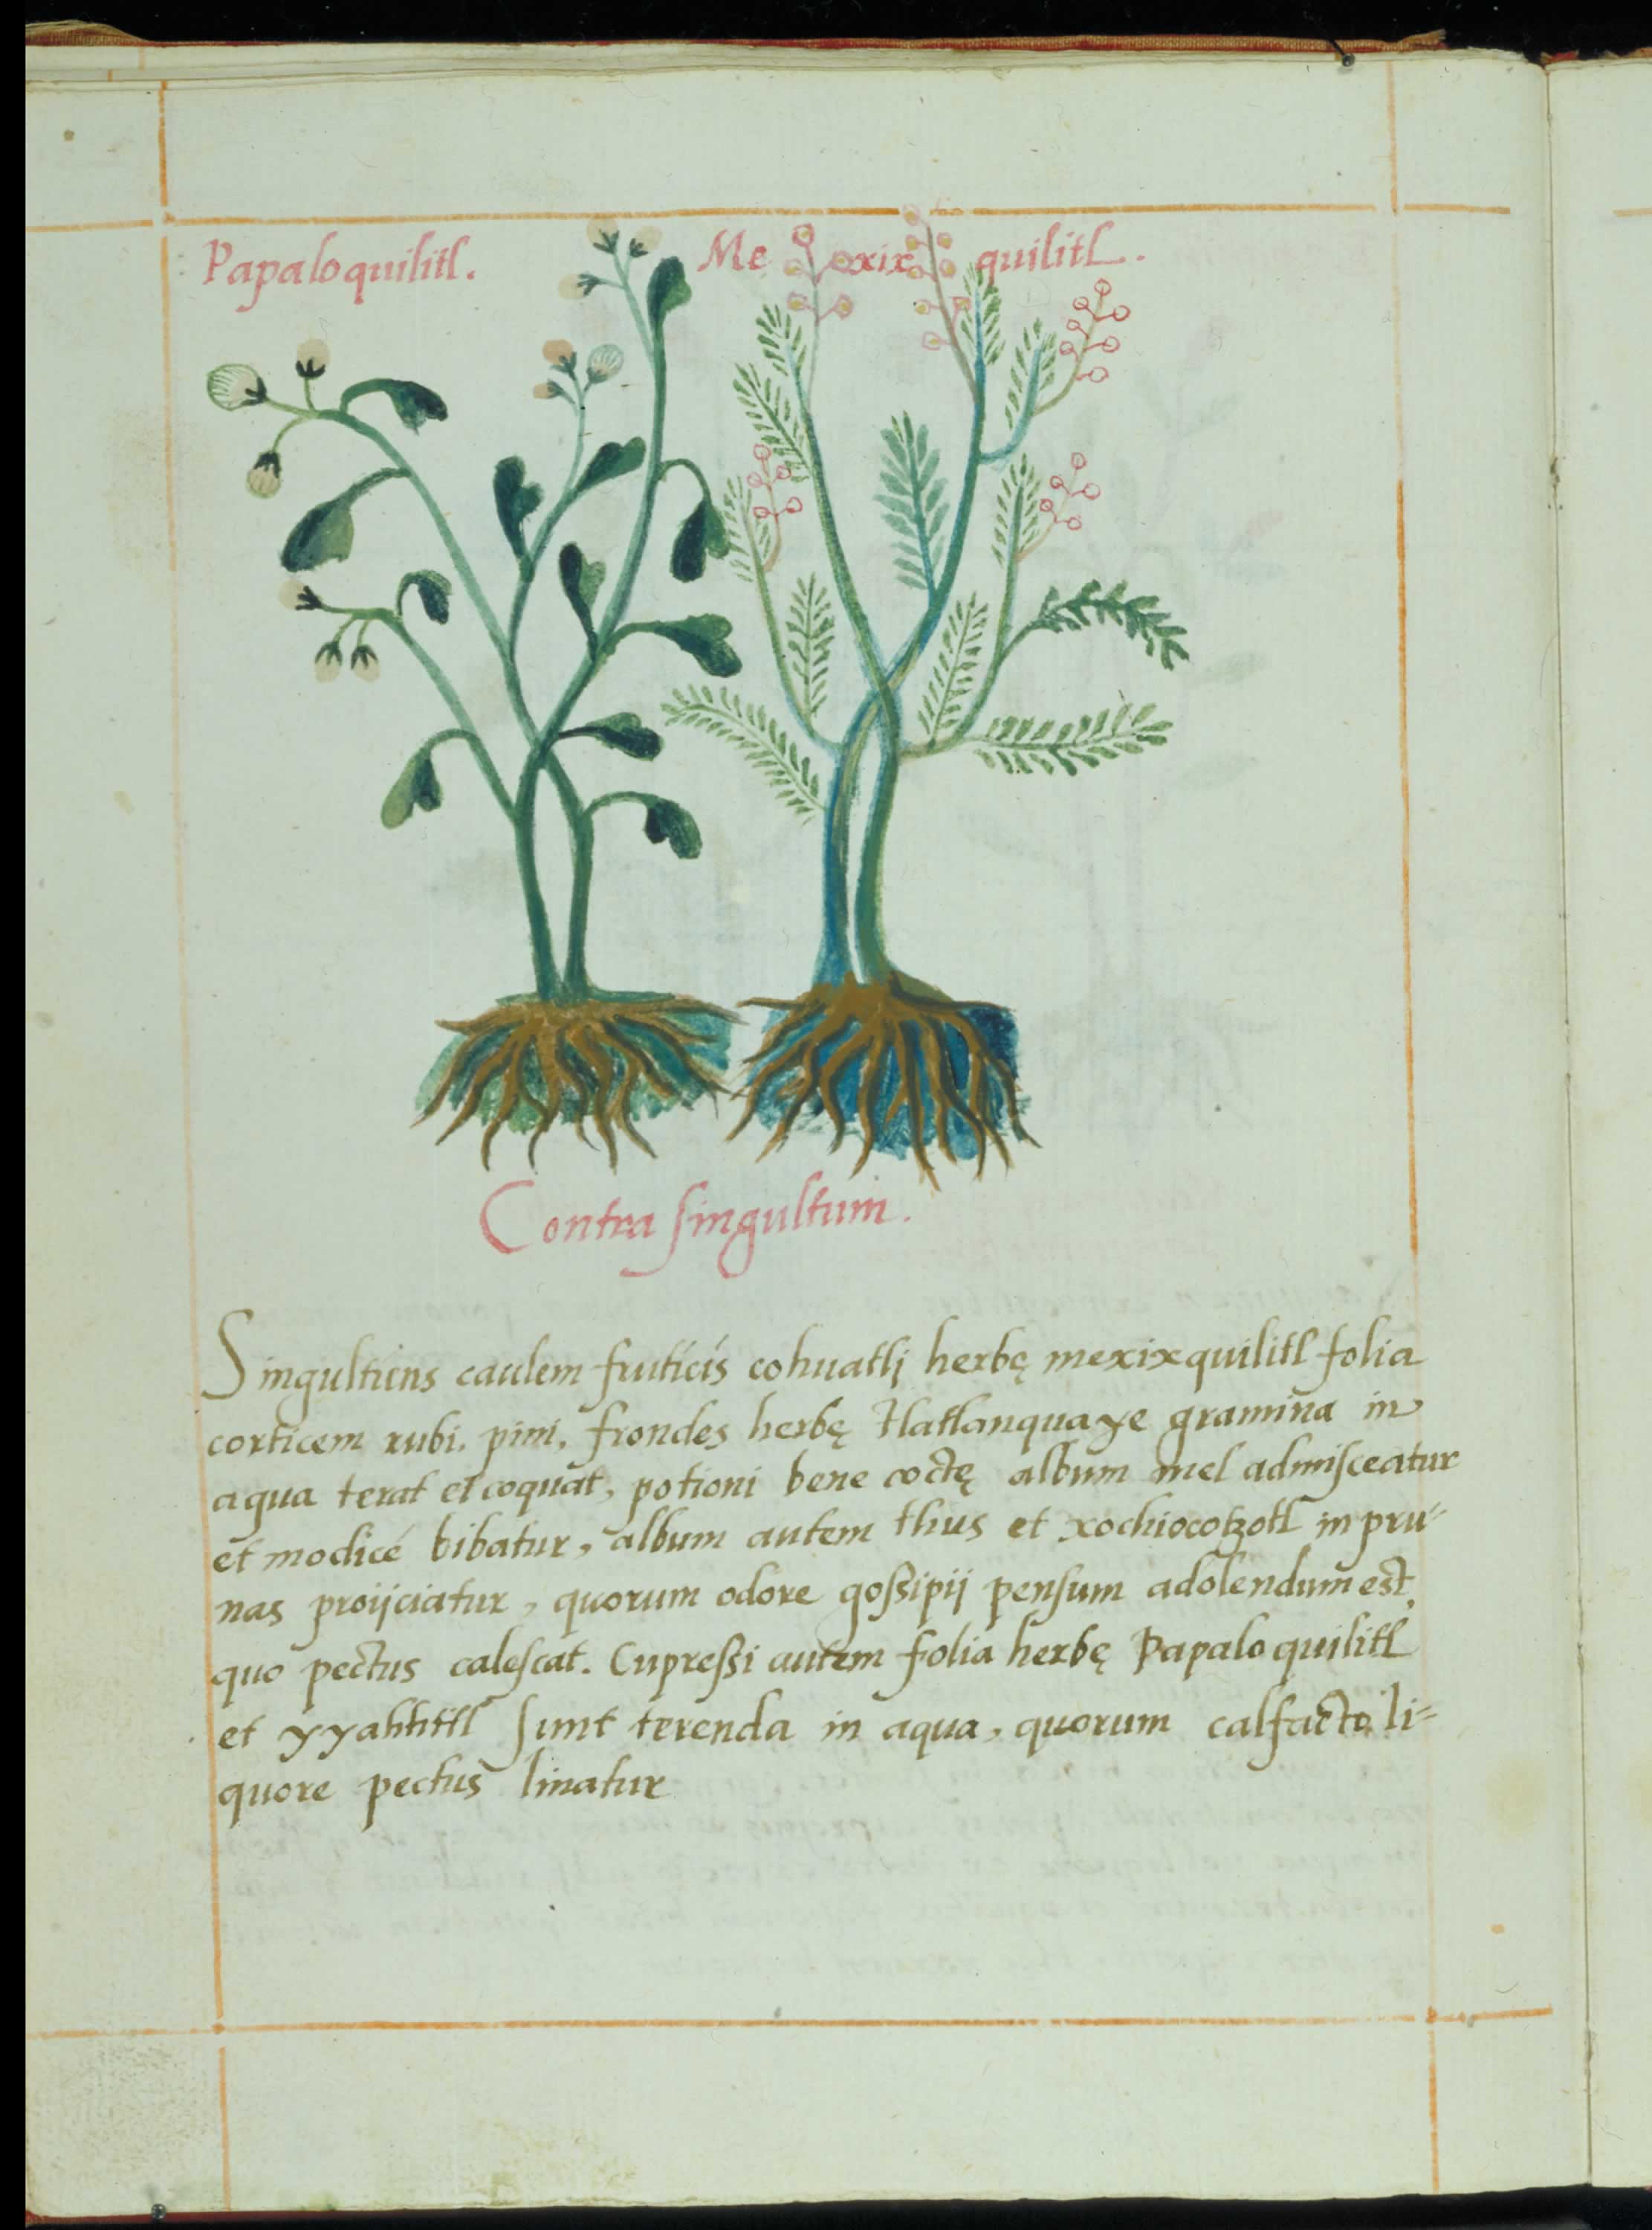 Papaloquilitl. Me xix quilitl.
Contra singultum.
Singultiens caulem fruticis cohuatli herbę mexixquilitl folia
corticem rubi. pini, frondes herbę tlatlanquaye gramina in
aqua terat et coquat, potioni bene coctę album mel admisceatur
et modicé bibatur, album autem thus et xochiocotzotl in pru=
nas proijciatur, quorum odore goßipij pensum adolendum est,
quo pectus calescat. Cupreßi autem folia herbę Papaloquilitl
et yyahhtitl sunt terenda in aqua, quorum calfacto li=
quore pectus linatur